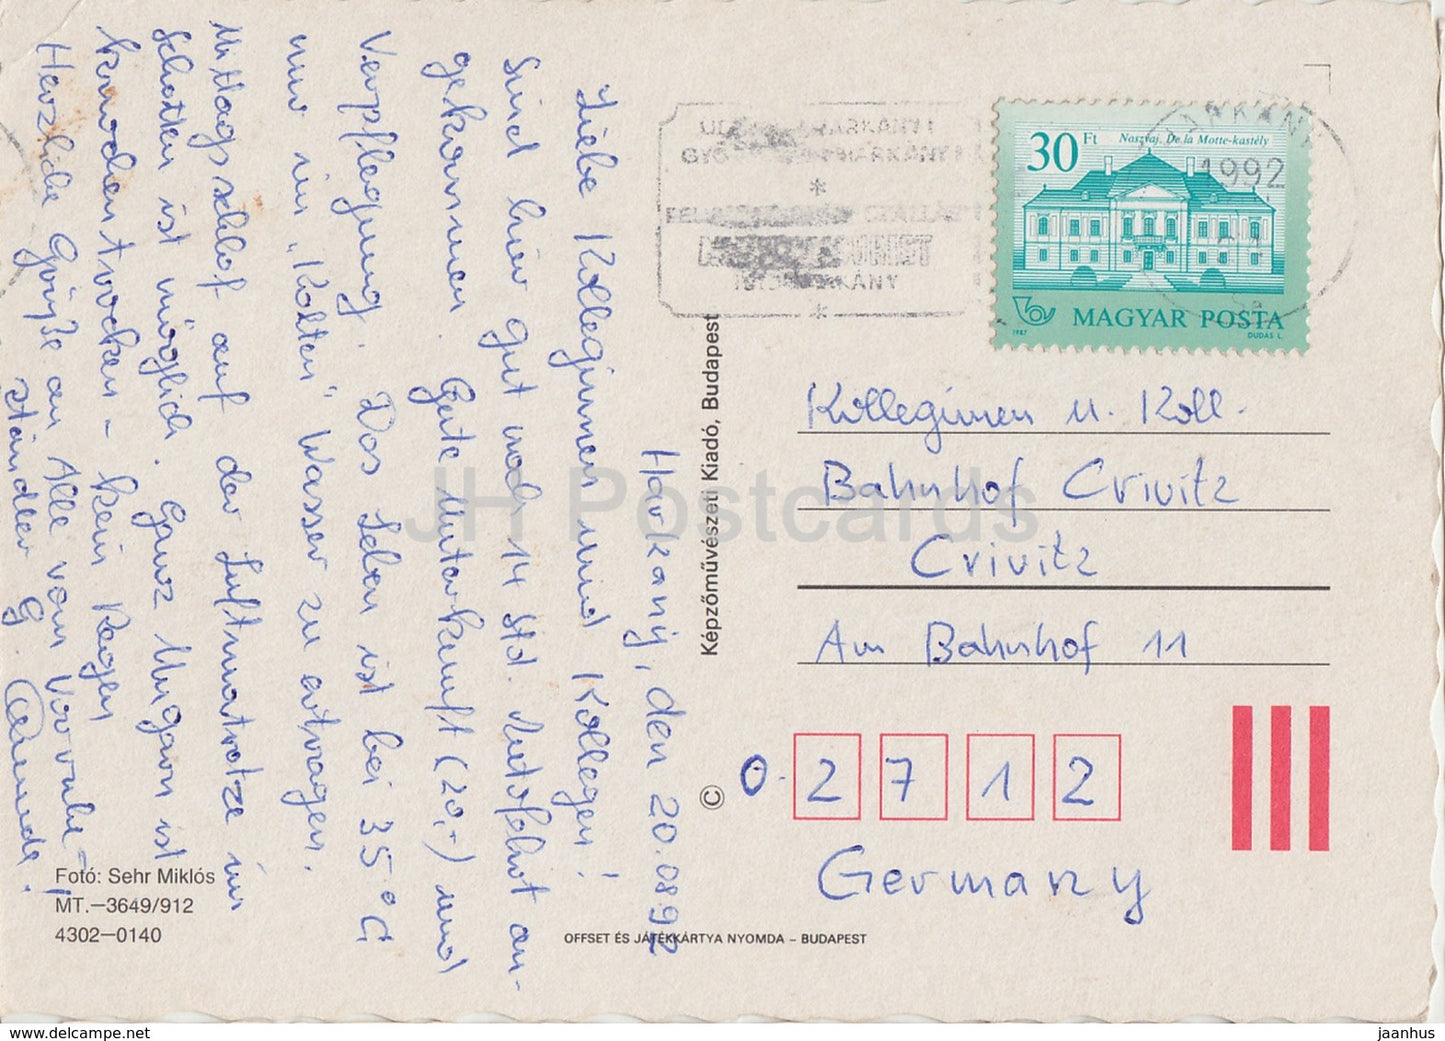 Harkány, den 20.08.92
Liebe Kolleginnen und Kollegen!
Sind hier gut nach 14 Std. Autofahrt an-
gekommen. Gute Unterkunft (20,-) und
Verpflegung. Das Leben ist bei 35°C
nur im "Kalten" Wasser zu ertragen.
Mittagsschlaf auf der Luftmatratze im
Schatten ist möglich. Ganz Ungarn ist
knochentrocken - kein Regen
Herzliche Grüße an Alle vom Vorruhe-
ständler G.
30 Ft
Noszvaj, De la Motte-kastély
1987
MAGYAR POSTA
DUDÁS L.
HARKÁNY
1992
Kolleginnen u. Koll.
Bahnhof Crivitz
Crivitz
Am Bahnhof 11
O-2712
Germany
Képzőművészeti Kiadó, Budapest
©
Fotó: Sehr Miklós
MT.—3649/912
4302—0140
OFFSET ÉS JÁTÉKKÁRTYA NYOMDA – BUDAPEST
JH Postcards
www.delcampe.net
jaanhus